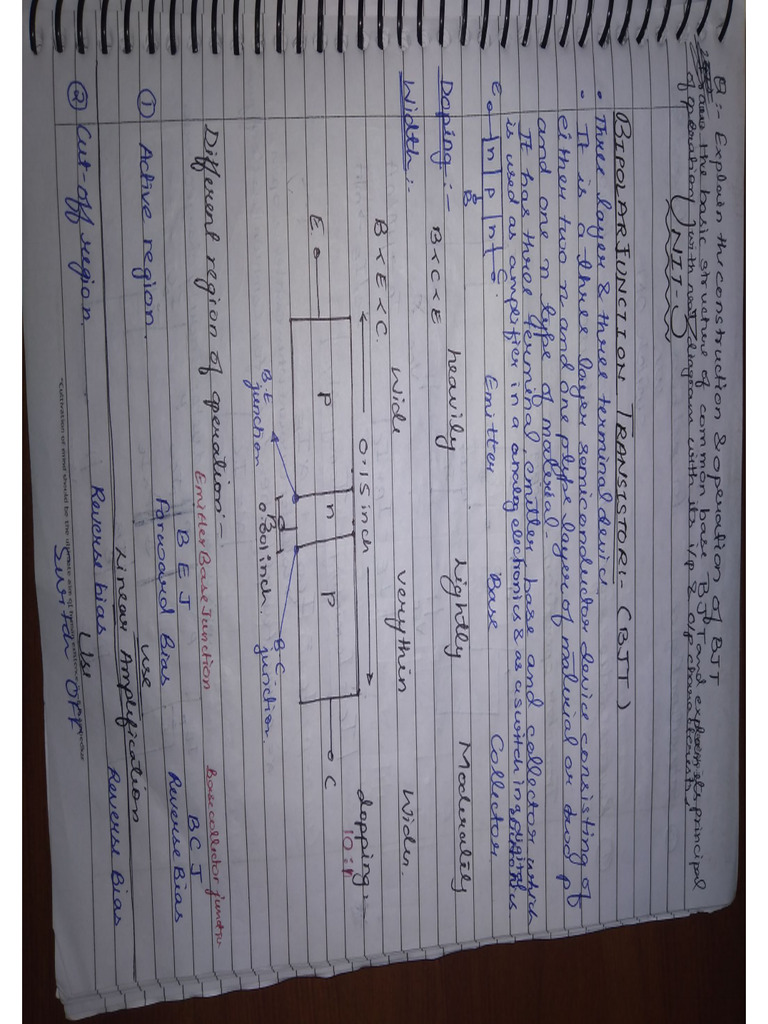 Q :- Explain the construction & operation of BJT
the basic structure of common base BJT and explain its principal
of operation with neat diagram with its i/p & o/p characteristics
UNIT-3
BIPOLAR JUNCTION TRANSISTOR :- (BJT)
• Three layer & three terminal device.
• It is a three layer semiconductor device consisting of
either two n and one p type layer of material or two p
and one n type of material.
It has three terminal, emitter base and collector which
is used as ampefier in a analog electronics & as a switch in digital
e n p n C
B
Emitter Base Collector
Doping :- B < C < E heavily Lightly Moderatily
Width :- B < E < C. Wide very thin Wider.
0.15 inch
dopping :-
10:1
E p n p C
B
0.001 inch.
B.E junction
B-C. junction.
Different region of operation :-
Emitter Base Junction Base collector junction
BEJ BCJ
① Active region. Forward Bias Reverse Bias
use
Linear Amplification
② Cut-off region. Reverse bias Reverse Bias
Use
Switch OFF